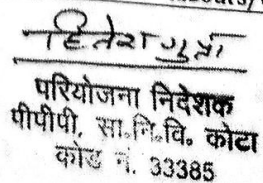 हितेश गुप्ता
परियोजना निदेशक
पीपीपी, सा.नि.वि. कोटा
कोड नं. 33385